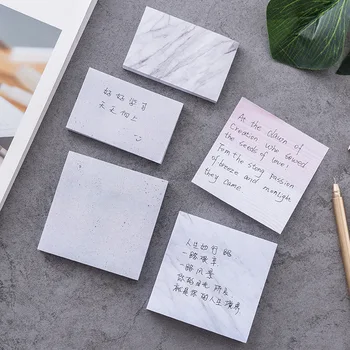 好好学习
天天向上
At the dawn of
Creation who sowed
the seeds of love?
From the strong passion
of breeze and moonlight
they came.
人生的行路
一路
一路风景
你的
就是你的人生